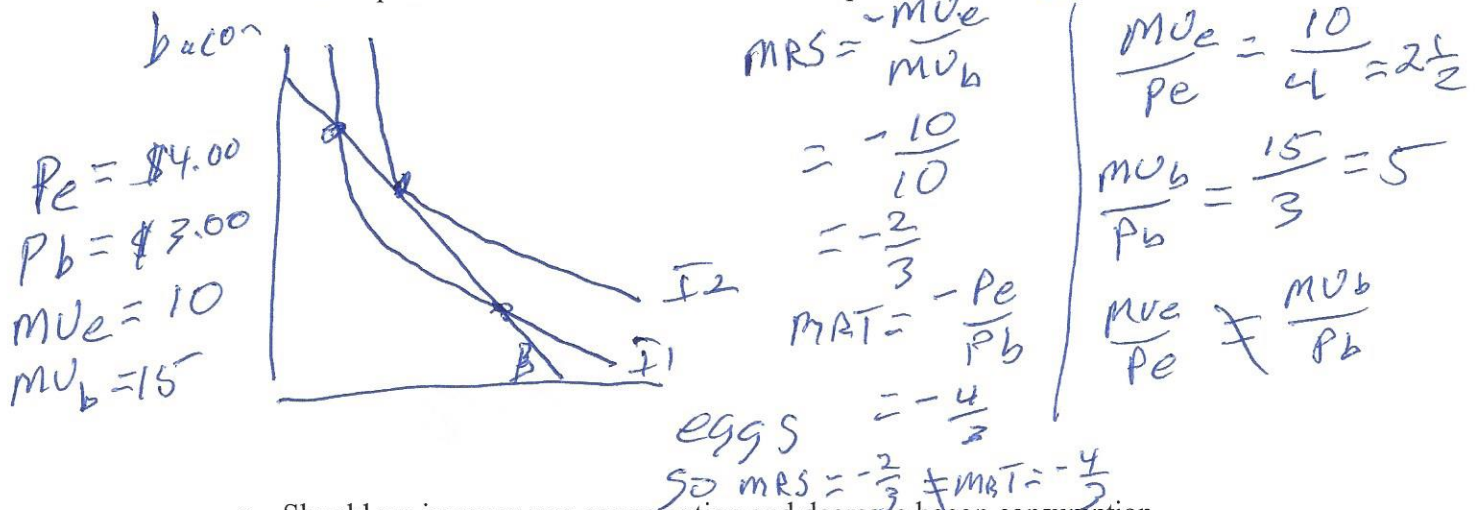 bacon
Pe = $4.00
Pb = $3.00
MUe = 10
MUb = 15
I2
I1
B
eggs
MRS = -MUe/MUb
= -10/10
= -2/3
MRT = -Pe/Pb
= -4/3
so MRS = -2/3 ≠ MRT = -4/3
MUe/Pe = 10/4 = 2 1/2
MUb/Pb = 15/3 = 5
MUe/Pe ≠ MUb/Pb